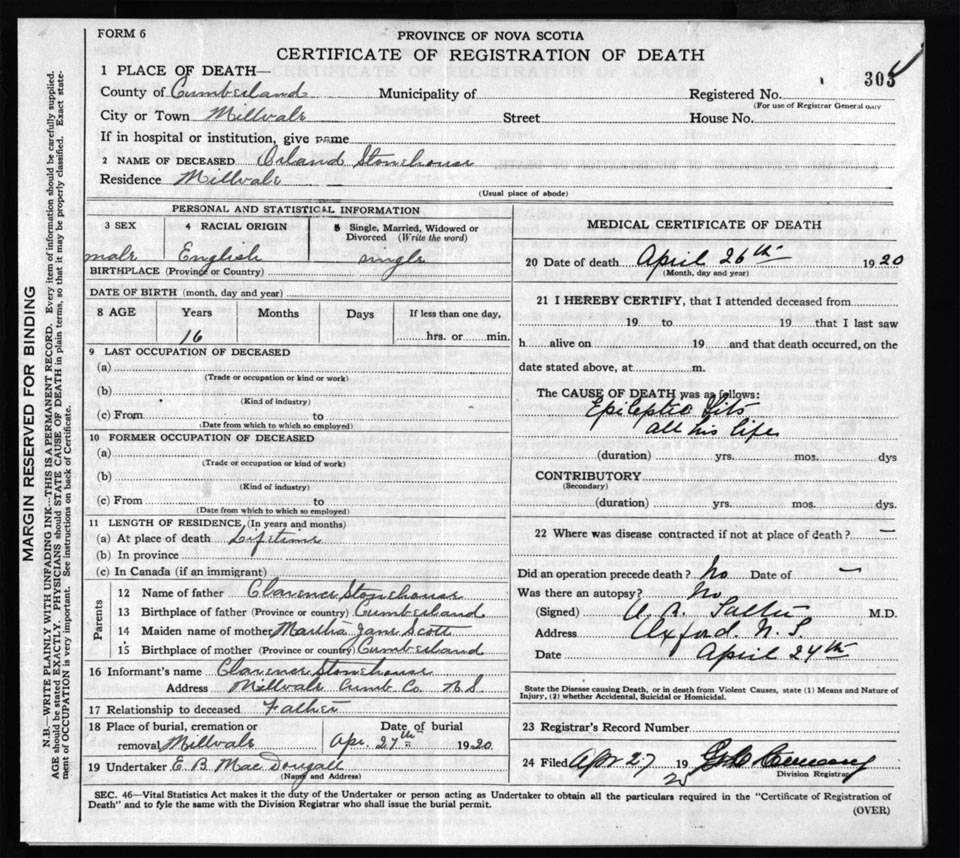 FORM 6
PROVINCE OF NOVA SCOTIA
CERTIFICATE OF REGISTRATION OF DEATH
303
1 PLACE OF DEATH—
County of Cumberland Municipality of Registered No.
(For use of Registrar General only
City or Town Millvale Street House No.
If in hospital or institution, give name
2 NAME OF DECEASED Orland Stonehouse
Residence Millvale
(Usual place of abode)
PERSONAL AND STATISTICAL INFORMATION
3 SEX 4 RACIAL ORIGIN 5 Single, Married, Widowed or Divorced (Write the word)
male English single
BIRTHPLACE (Province or Country)
DATE OF BIRTH (month, day and year)
8 AGE Years Months Days If less than one day,
16 hrs. or min.
9 LAST OCCUPATION OF DECEASED
(a)
(Trade or occupation or kind or work)
(b)
(Kind of industry)
(c) From to
(Date from which to which so employed)
10 FORMER OCCUPATION OF DECEASED
(a)
(Trade or occupation or kind of work)
(b)
(Kind of industry)
(c) From to
(Date from which to which so employed)
11 LENGTH OF RESIDENCE, (In years and months)
(a) At place of death Lifetime
(b) In province
(c) In Canada (if an immigrant)
Parents
12 Name of father Clarence Stonehouse
13 Birthplace of father (Province or country) Cumberland
14 Maiden name of mother Martha Jane Scott
15 Birthplace of mother (Province or country) Cumberland
16 Informant's name Clarence Stonehouse
Address Millvale Cumb Co. N.S.
17 Relationship to deceased Father
18 Place of burial, cremation or removal Millvale
Date of burial
Apr. 27th 1920
19 Undertaker E. B. MacDougall
(Name and Address)
MEDICAL CERTIFICATE OF DEATH
20 Date of death April 26th 1920
(Month, day and year)
21 I HEREBY CERTIFY, that I attended deceased from
19 to 19 that I last saw
h alive on 19 and that death occurred, on the
date stated above, at m.
The CAUSE OF DEATH was as follows:
Epileptic fits
all his life
(duration) yrs. mos. dys
CONTRIBUTORY
(Secondary)
(duration) yrs. mos. dys.
22 Where was disease contracted if not at place of death? —
Did an operation precede death? No Date of —
Was there an autopsy? No
(Signed) A. R. M.D.
Address Oxford. N.S.
Date April 24th
State the Disease causing Death, or in death from Violent Causes, state (1) Means and Nature of
Injury, (2) whether Accidental, Suicidal or Homicidal.
23 Registrar's Record Number
24 Filed Apr 27 19 20
Division Registrar
SEC. 46—Vital Statistics Act makes it the duty of the Undertaker or person acting as Undertaker to obtain all the particulars required in the "Certificate of Registration of
Death" and to fyle the same with the Division Registrar who shall issue the burial permit.
(OVER)
MARGIN RESERVED FOR BINDING
N.B.—WRITE PLAINLY WITH UNFADING INK—THIS IS A PERMANENT RECORD. Every item of information should be carefully supplied.
AGE should be stated EXACTLY. PHYSICIANS should STATE CAUSE OF DEATH in plain terms, so that it may be properly classified. Exact state-
ment of OCCUPATION is very important. See instructions on back of Certificate.